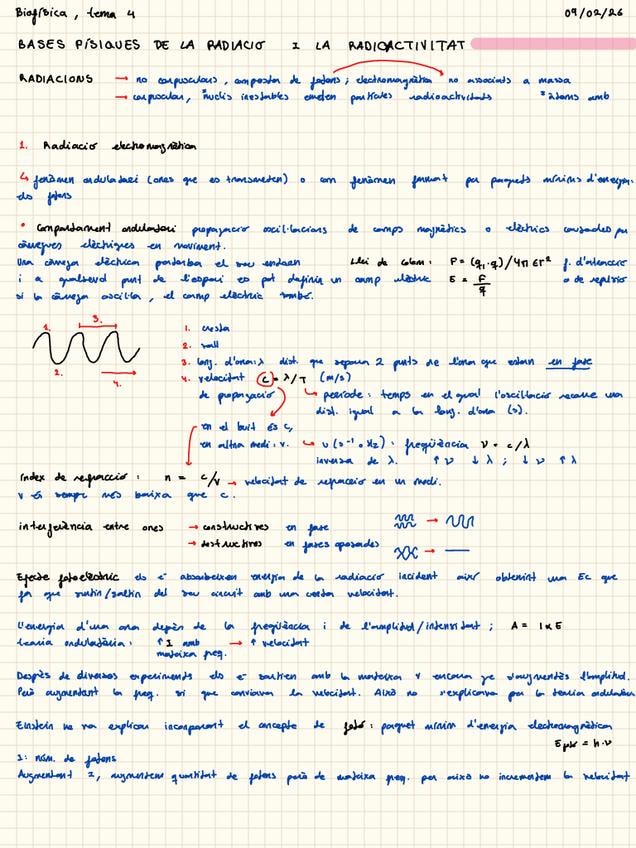 Biofísica, tema 4
09/02/26
BASES FÍSIQUES DE LA RADIACIO I LA RADIOACTIVITAT
RADIACIONS → no corpusculars, compostos de fotons; electromagnètica no associats a massa
→ corpuscular, *nuclis inestables emeten partícules radioactivitats *àtoms amb
1. Radiacio electromagnètica
↳ fenòmen ondulatori (ones que es transmeten) o com fenòmen format per paquets mínims d'energia:
els fotons
• Comportament ondulatori propagacio oscil·lacions de camps magnètics o elèctrics causades per
càrregues elèctriques en moviment.
Una càrrega elèctrica pertorba el seu entorn Llei de Colom: F = (q₁·q)/4π εr² f. d'atraccio
i a qualsevol punt de l'espai es pot definir un camp elèctric E = F/q o de repulsio
si la càrrega oscil·la, el camp elèctric també.
1. 3.
2. 4.
1. cresta
2. vall
3. long. d'ona: λ dist. que separa 2 punts de l'ona que estan en fase
4. velocitat c = λ/T (m/s)
de propagació ↳ període: temps en el qual l'oscil·lacio recorre una
dist. igual a la long. d'ona (s).
en el buit és c,
en altre medi: v. ↳ ν (s⁻¹ o Hz): freqüència ν = c/λ
inversa de λ. ↑ν ↓λ ; ↓ν ↑λ
Índex de refraccio: n = c/v → velocitat de refraccio en un medi.
v és sempre més baixa que c.
interferència entre ones → constructives en fase
→ destructives en fases oposades
Efecte fotoelèctric els e⁻ absorbeixen energia de la radiacio incident així obtenint una Ec que
fa que surtin/saltin del seu circuit amb una certa velocitat.
L'energia d'una ona depèn de la freqüència i de l'amplitud/intensitat; A = I ∝ E
teoria ondulatòria: ↑I amb → ↑ velocitat
mateixa freq.
Després de diversos experiments els e⁻ sortien amb la mateixa v encara que s'augmentés l'amplitud.
Però augmentant la freq. si que canviava la velocitat. Això no s'explicava per la teoria ondulatòria
Einstein ho va explicar incorporant el concepte de fotó: paquet mínim d'energia electromagnètica
E fotó = h·ν
I: núm. de fotons
Augmentant I, augmentem quantitat de fotons però de mateixa freq. per això no incrementem la velocitat